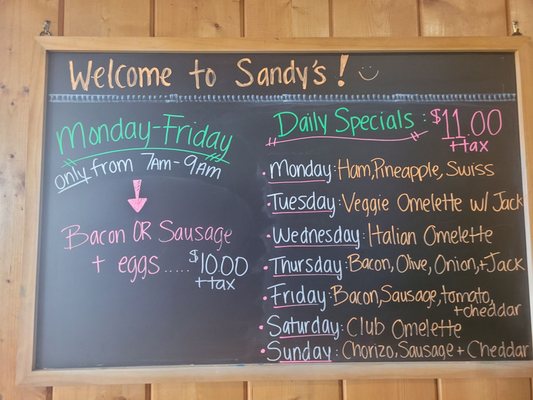 Welcome to Sandy's!
Monday-Friday
only from 7AM-9AM
Bacon OR Sausage
+ eggs.....$10.00
+tax
Daily Specials: $11.00
+tax
• Monday: Ham, Pineapple, Swiss
• Tuesday: Veggie Omelette w/ Jack
• Wednesday: Italian Omelette
• Thursday: Bacon, Olive, Onion, + Jack
• Friday: Bacon, Sausage, tomato,
+ cheddar
• Saturday: Club Omelette
• Sunday: Chorizo, Sausage + Cheddar